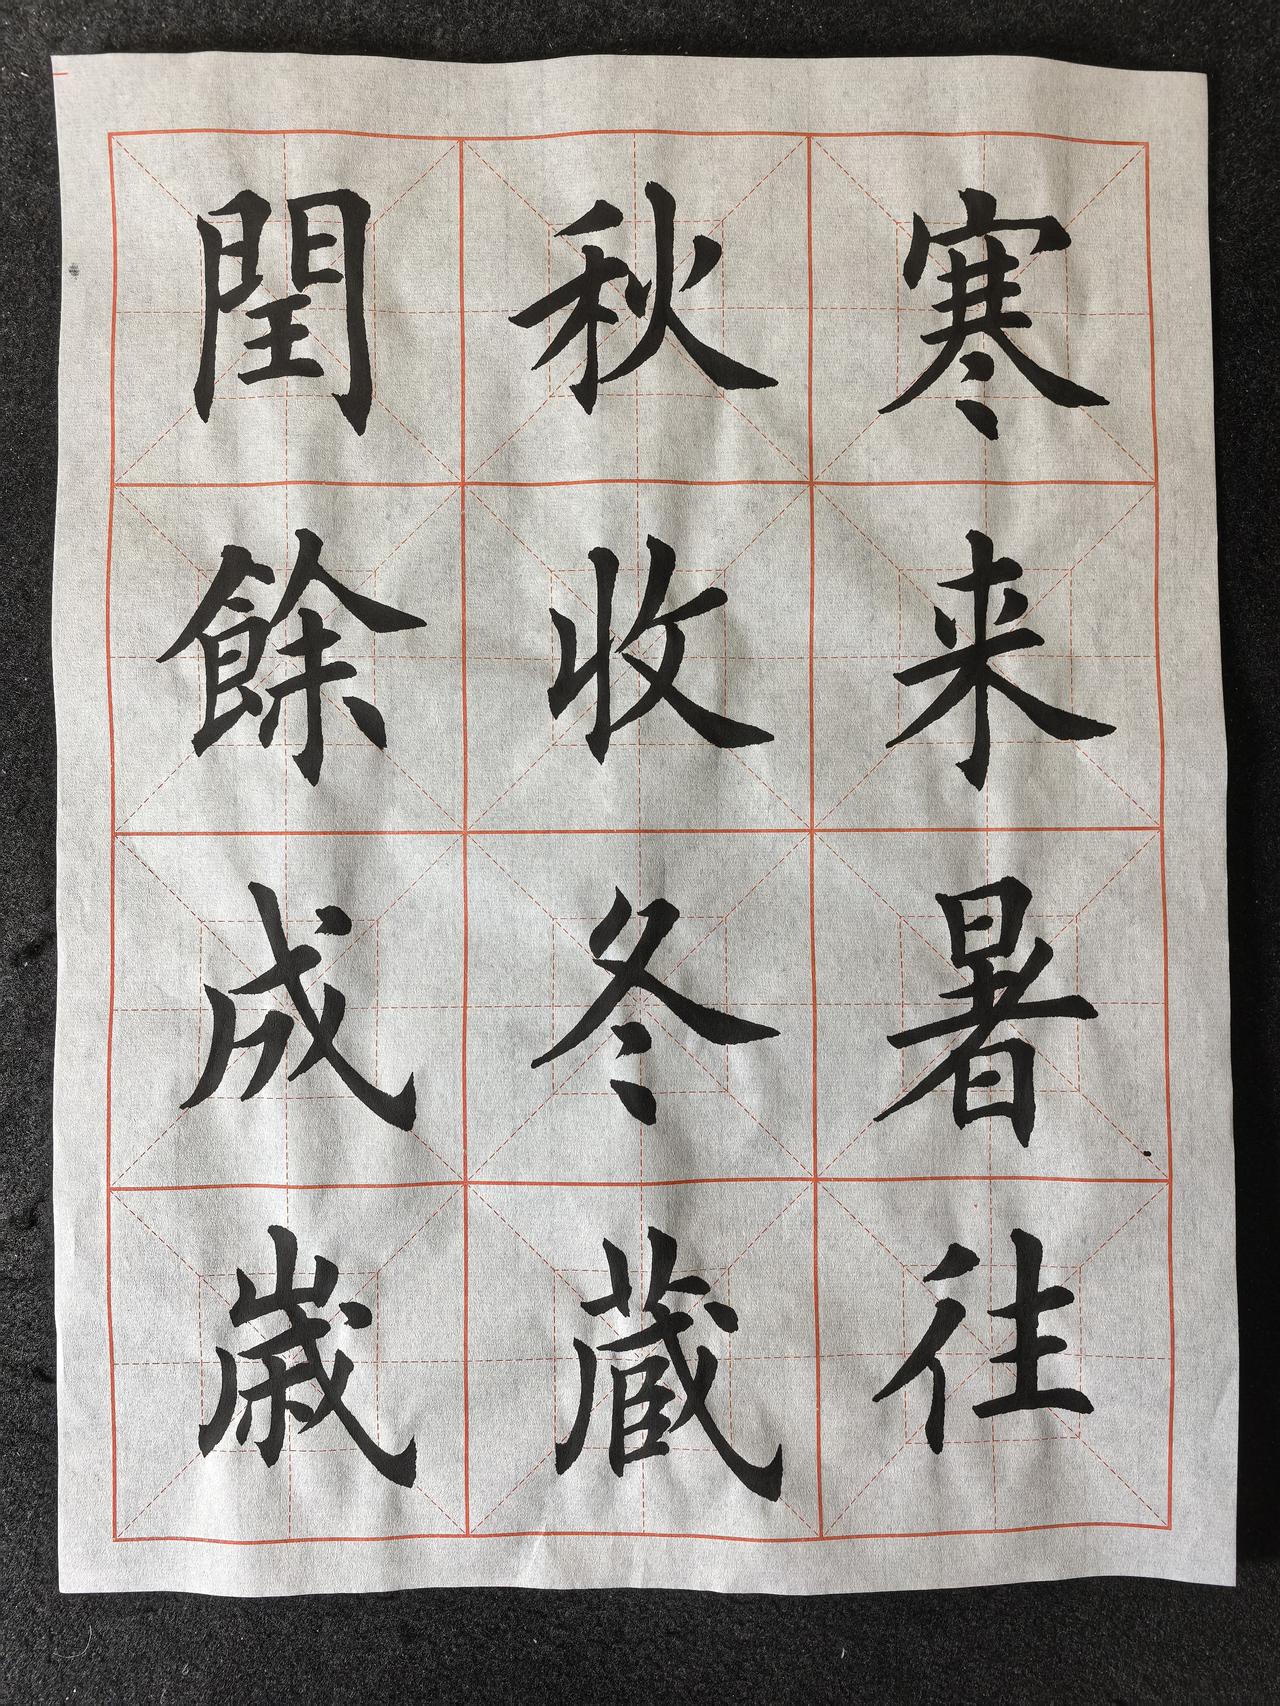 寒来暑往
秋收冬蔵
閏餘成歳